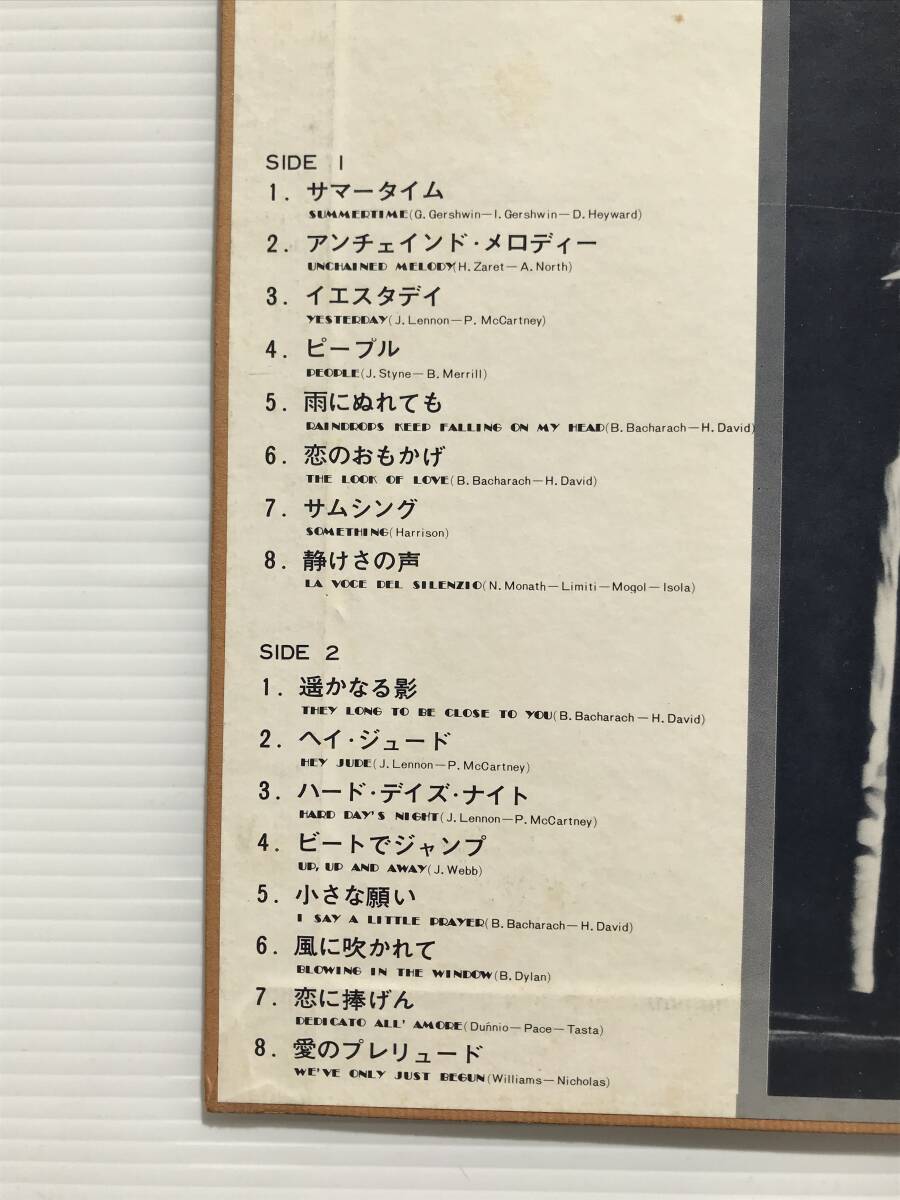 SIDE 1
1. サマータイム
SUMMERTIME(G. Gershwin—I. Gershwin—D. Heyward)
2. アンチェインド・メロディー
UNCHAINED MELODY(H. Zaret—A. North)
3. イエスタデイ
YESTERDAY(J. Lennon—P. McCartney)
4. ピープル
PEOPLE(J. Styne—B. Merrill)
5. 雨にぬれても
RAINDROPS KEEP FALLING ON MY HEAD(B. Bacharach—H. David)
6. 恋のおもかげ
THE LOOK OF LOVE(B. Bacharach—H. David)
7. サムシング
SOMETHING(Harrison)
8. 静けさの声
LA VOCE DEL SILENZIO(N. Monath—Limiti—Mogol—Isola)
SIDE 2
1. 遥かなる影
THEY LONG TO BE CLOSE TO YOU(B. Bacharach—H. David)
2. ヘイ・ジュード
HEY JUDE(J. Lennon—P. McCartney)
3. ハード・デイズ・ナイト
HARD DAY'S NIGHT(J. Lennon—P. McCartney)
4. ビートでジャンプ
UP, UP AND AWAY(J. Webb)
5. 小さな願い
I SAY A LITTLE PRAYER(B. Bacharach—H. David)
6. 風に吹かれて
BLOWING IN THE WINDOW(B. Dylan)
7. 恋に捧げん
DEDICATO ALL' AMORE(Duñnio—Pace—Tasta)
8. 愛のプレリュード
WE'VE ONLY JUST BEGUN(Williams—Nicholas)